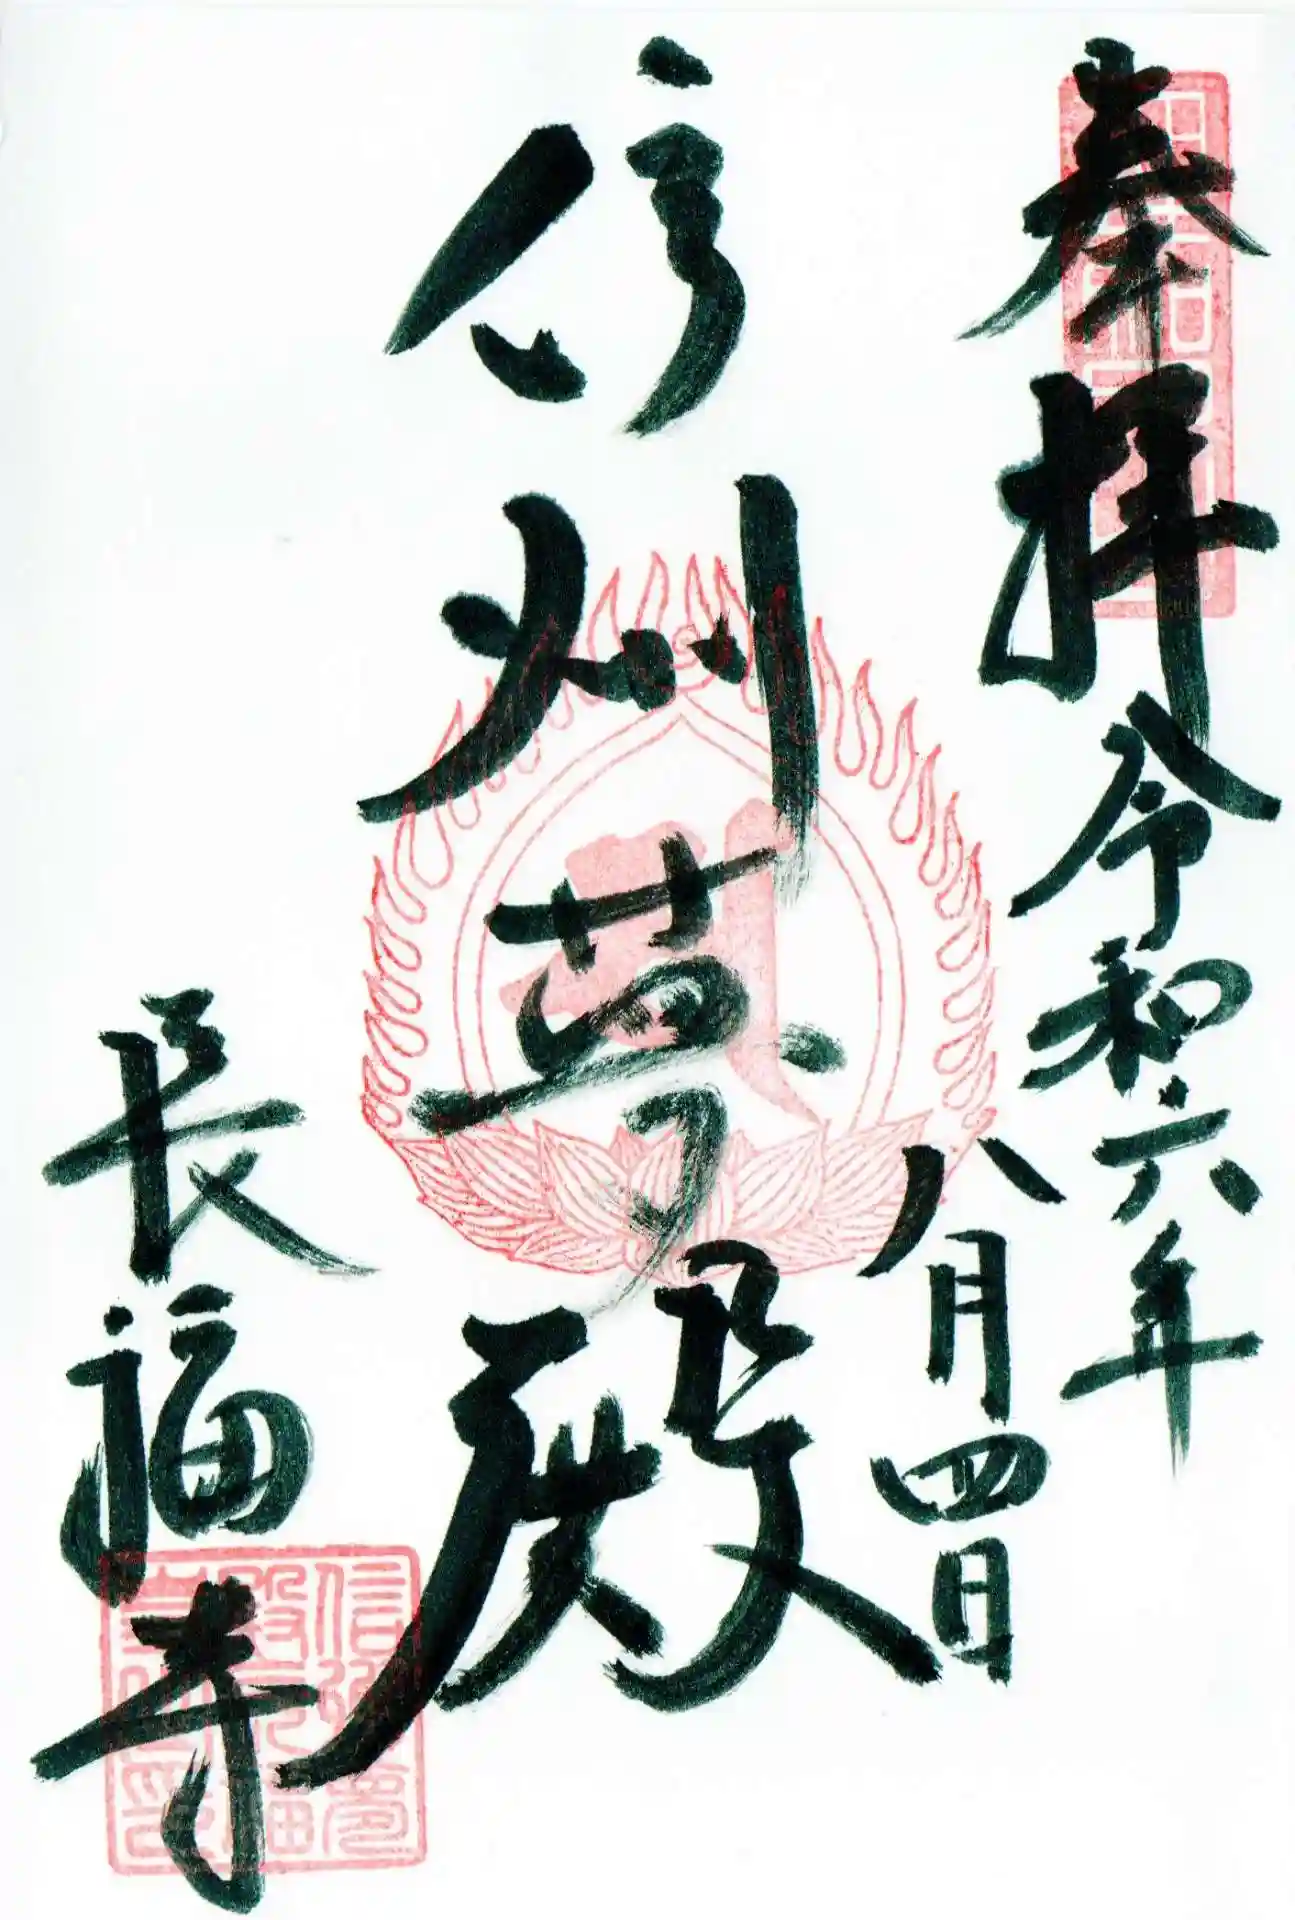 奉拝
令和六年
八月四日
信州夢殿
長福寺